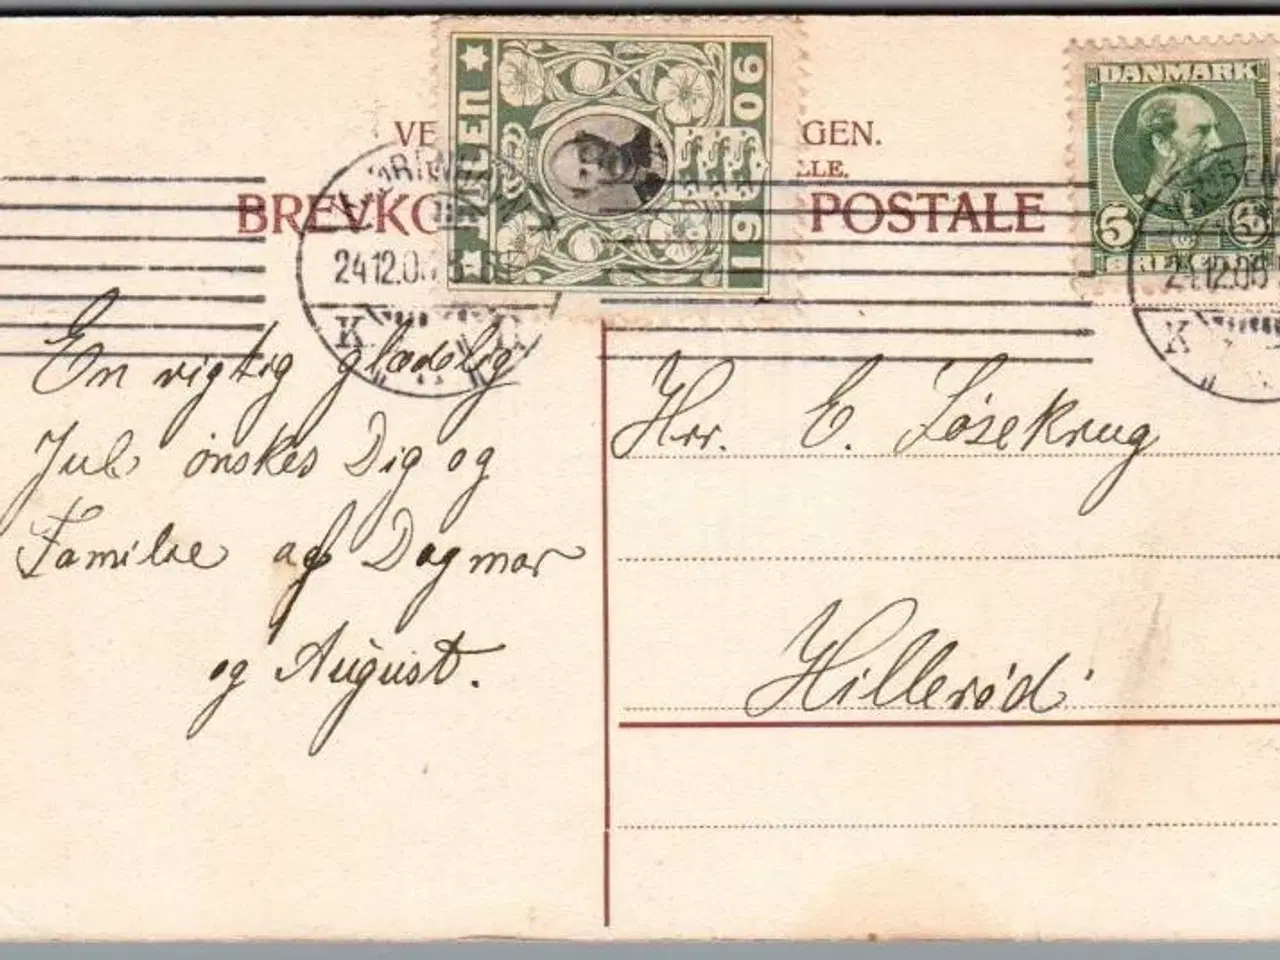 VE
GEN.
LLE.
BREVKO
POSTALE
JULEN
1906
DANMARK
5
24.12.06
K
En rigtig glædelig
Jul ønskes Dig og
Familie af Dagmar
og August.
Hrr. E. Løsekrug
Hillerød